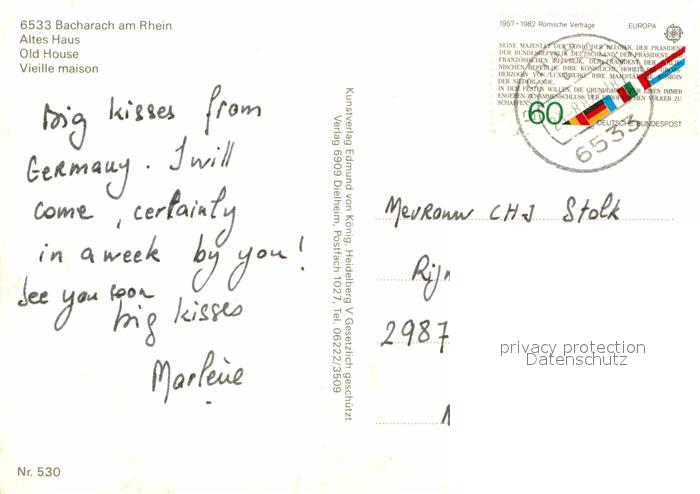 6533 Bacharach am Rhein
Altes Haus
Old House
Vieille maison
big kisses from
Germany. I will
come, certainly
in a week by you!
See you soon
big kisses
Marlène
Nr. 530
Kunstverlag Edmund von König, Heidelberg V Gesetzlich geschützt
Verlag 6909 Dielheim, Postfach 1027, Tel. 06222/3509
1957-1982 Römische Verträge EUROPA
SEINE MAJESTÄT DER KÖNIG DER BELGIER, DER PRÄSIDENT
DER BUNDESREPUBLIK DEUTSCHLAND, DER PRÄSIDENT DER
FRANZÖSISCHEN REPUBLIK, DER PRÄSIDENT DER
NISCHEN REPUBLIK, IHRE KÖNIGLICHE HOHEIT
HERZOGIN VON LUXEMBURG, IHRE MAJESTÄT DIE KÖNIGIN
DER NIEDERLANDE,
IN DEM FESTEN WILLEN, DIE GRUNDLAGEN IMMER
ENGEREN ZUSAMMENSCHLUSS DER EUROPÄISCHEN VÖLKER ZU
SCHAFFEN
60
DEUTSCHE BUNDESPOST
6533
Mevrouw CHJ Stolk
Rijn
2987
privacy protection
Datenschutz